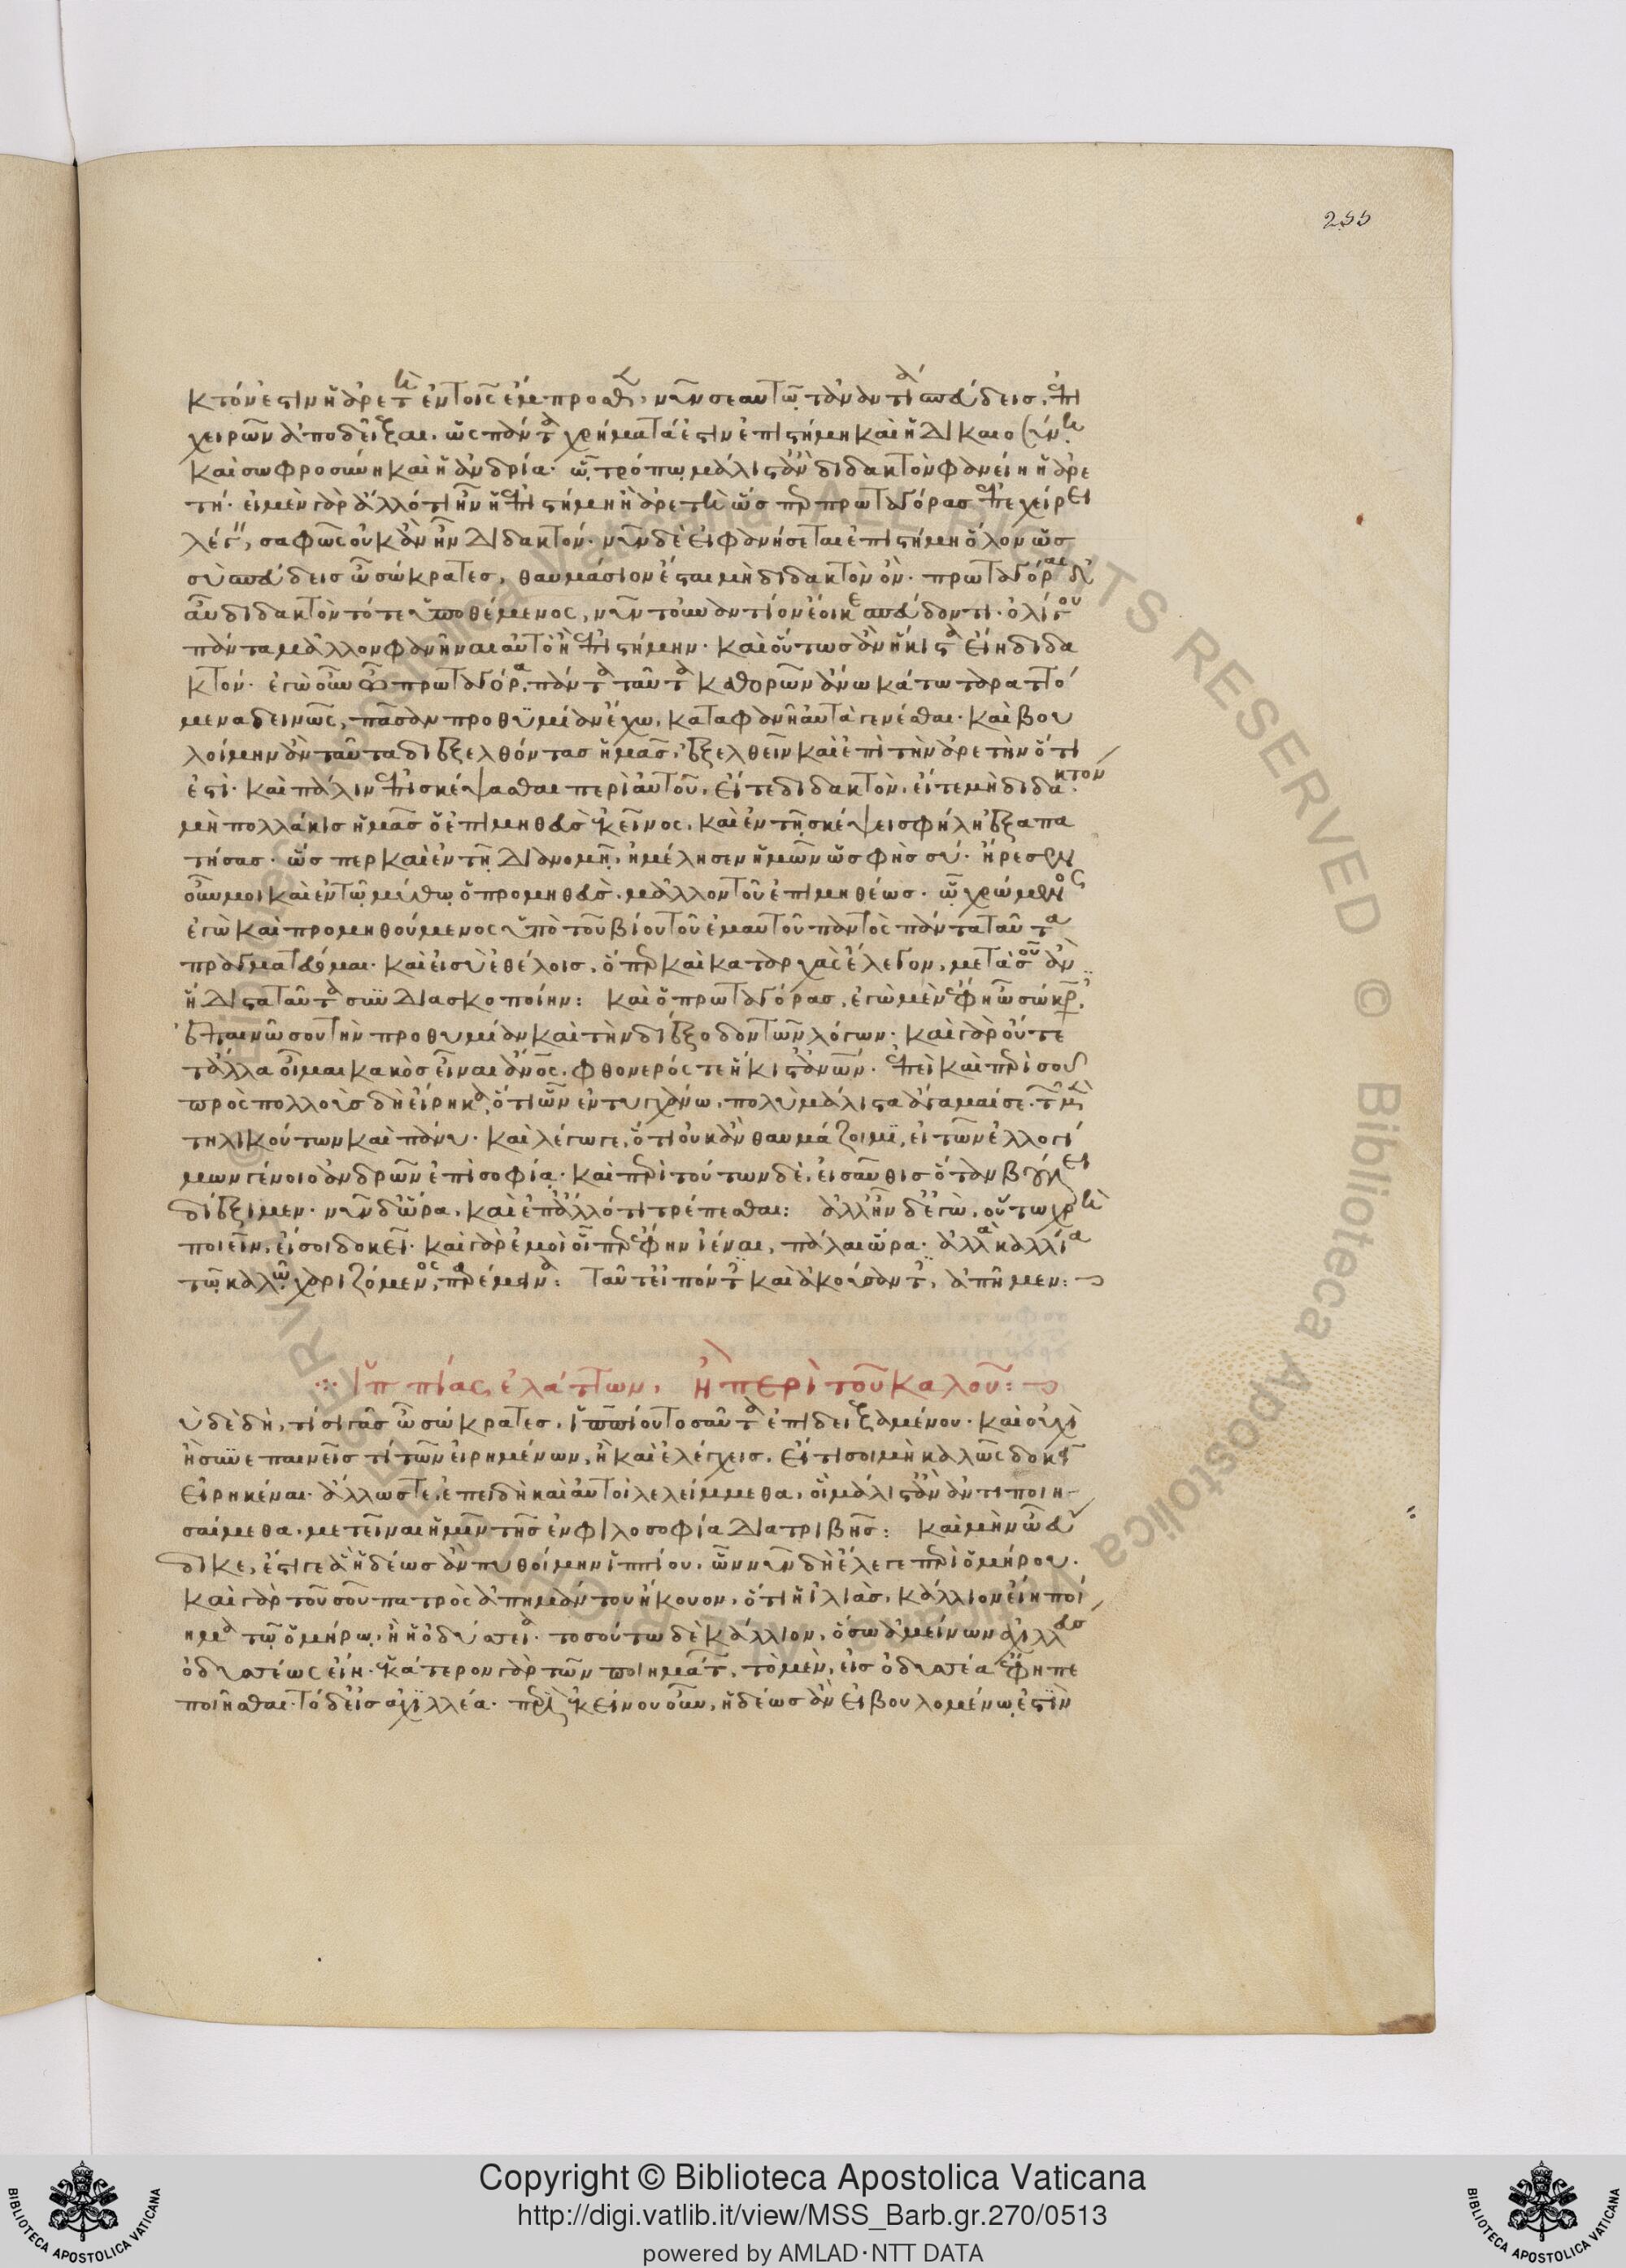 255
κτόν ἐστιν ἡ ἀρετὴ ἐν τοῖς ἔμπροσθεν, νῦν σεαυτῷ τἀναντία σπεύδεις, ἐπι
χειρῶν ἀποδεῖξαι. ὡς πάντα χρήματά ἐστιν ἐπιστήμη καὶ ἡ δικαιοσύνη
καὶ σωφροσύνη καὶ ἡ ἀνδρία· ᾧ τρόπῳ μάλιστ' ἂν διδακτὸν φανείη ἡ ἀρε
τή· εἰ μὲν γὰρ ἄλλό τι ἦν ἢ ἐπιστήμη ἡ ἀρετὴ ὥσπερ πρωταγόρας ἐπεχείρει
λέγειν, σαφῶς οὐκ ἂν ἦν διδακτόν· νῦν δὲ εἰ φανήσεται ἐπιστήμη ὅλον ὡς
σὺ σπεύδεις ὦ σώκρατες, θαυμάσιον ἔσται μὴ διδακτὸν ὄν· πρωταγόρας δ'
αὖ διδακτὸν τότε ὑποθέμενος, νῦν τοὐναντίον ἔοικε σπεύδοντι· ὀλίγου
πάντα μᾶλλον φανῆναι αὐτὸ ἢ ἐπιστήμην· καὶ οὕτως ἂν ἥκιστα εἴη διδα
κτόν· ἐγὼ οὖν ὦ πρωταγόρα, πάντα ταῦτα καθορῶν ἄνω κάτω ταραττό
μενα δεινῶς, πᾶσαν προθυμίαν ἔχω, καταφανῆ αὐτὰ γενέσθαι· καὶ βου
λοίμην ἂν ταῦτα διεξελθόντας ἡμᾶς, ἐξελθεῖν καὶ ἐπὶ τὴν ἀρετὴν ὅ τι
ἐστί· καὶ πάλιν ἐπισκέψασθαι περὶ αὐτοῦ, εἴτε διδακτὸν, εἴτε μὴ διδακτόν.
μὴ πολλάκις ἡμᾶς ὁ ἐπιμηθεὺς ἐκεῖνος, καὶ ἐν τῇ σκέψει σφήλῃ ἐξαπα
τήσας· ὥσπερ καὶ ἐν τῇ διανομῇ, ἠμέλησεν ἡμῶν ὡς φὴς σύ· ἤρεσεν
οὖν μοι καὶ ἐν τῷ μύθῳ ὁ προμηθεὺς, μᾶλλον τοῦ ἐπιμηθέως· ᾧ χρώμενος
ἐγὼ καὶ προμηθούμενος ὑπὸ τοῦ βίου τοῦ ἐμαυτοῦ παντὸς πάντα ταῦτα
πραγματεύομαι· καὶ εἰ σὺ ἐθέλοις, ὅπερ καὶ κατ' ἀρχὰς ἔλεγον, μετὰ σοῦ ἂν
ἥδιστα ταῦτα συνδιασκοποίην: καὶ ὁ πρωταγόρας, ἐγὼ μὲν ἔφη ὦ σώκρατες,
ἐπαινῶ σου τὴν προθυμίαν καὶ τὴν διέξοδον τῶν λόγων· καὶ γὰρ οὔτε
τἄλλα οἶμαι κακὸς εἶναι ἄνθρωπος, φθονερός τε ἥκιστ' ἀνθρώπων· ἐπεὶ καὶ περὶ σοῦ
πρὸς πολλοὺς δὴ εἴρηκα, ὅτι ὧν ἐντυγχάνω, πολὺ μάλιστα ἄγαμαί σε, τῶν μὲν
τηλικούτων καὶ πάνυ· καὶ λέγω γε, ὅτι οὐκ ἂν θαυμάζοιμι, εἰ τῶν ἐλλογί
μων γένοιο ἀνδρῶν ἐπὶ σοφίᾳ· καὶ περὶ τούτων δὲ, εἰσαῦθις ὅταν βούλει
διέξιμεν· νῦν δ' ὥρα, καὶ ἐπ' ἄλλό τι τρέπεσθαι: ἀλλ' ἦν δ' ἐγὼ, οὕτω χρὴ
ποιεῖν, εἴ σοι δοκεῖ· καὶ γὰρ ἐμοὶ οἷπερ ἔφην ἰέναι, πάλαι ὥρα· ἀλλὰ καλλία
τῷ καλῷ χαριζόμενος, παρέμεινα: Ταῦτ' εἰπόντες καὶ ἀκούσαντες, ἀπῇμεν:
Ἱππίας ἐλάττων, ἢ περὶ τοῦ καλοῦ:
ὺ δὲ δὴ, τί σιγᾷς ὦ σώκρατες, ἱππίου τοσαῦτα ἐπιδειξαμένου· καὶ οὐχὶ
ἢ συνεπαινεῖς τί τῶν εἰρημένων, ἢ καὶ ἐλέγχεις, εἴ τι σοι μὴ καλῶς δοκεῖ
εἰρηκέναι· ἄλλως τε, ἐπειδὴ καὶ αὐτοὶ λελείμμεθα, οἳ μάλιστ' ἂν ἀντιποιη
σαίμεθα· μετεῖναι ἡμῖν τῆς ἐν φιλοσοφίᾳ διατριβῆς: καὶ μὴν ὦ εὔ
δικε, ἔστι γε ἃ ἡδέως ἂν πυθοίμην ἱππίου, ὧν νῦν δὴ ἔλεγε περὶ ὁμήρου.
καὶ γὰρ τοῦ σοῦ πατρὸς ἀπημάντου ἤκουον, ὅτι ἡ ἰλιὰς, κάλλιον εἴη ποί
ημα τῷ ὁμήρῳ, ἢ ἡ ὀδύσσεια· τοσούτῳ δὲ κάλλιον, ὅσῳ ἀμείνων ἀχιλλεὺς
ὀδυσσέως εἴη· ἑκάτερον γὰρ τῶν ποιημάτων, τὸ μὲν, εἰς ὀδυσσέα ἔφη πε
ποιῆσθαι· τὸ δ' εἰς ἀχιλλέα· περὶ ἐκείνου οὖν, ἡδέως ἂν εἰ βουλομένῳ ἐστὶν
Copyright © Biblioteca Apostolica Vaticana
http://digi.vatlib.it/view/MSS_Barb.gr.270/0513
powered by AMLAD·NTT DATA